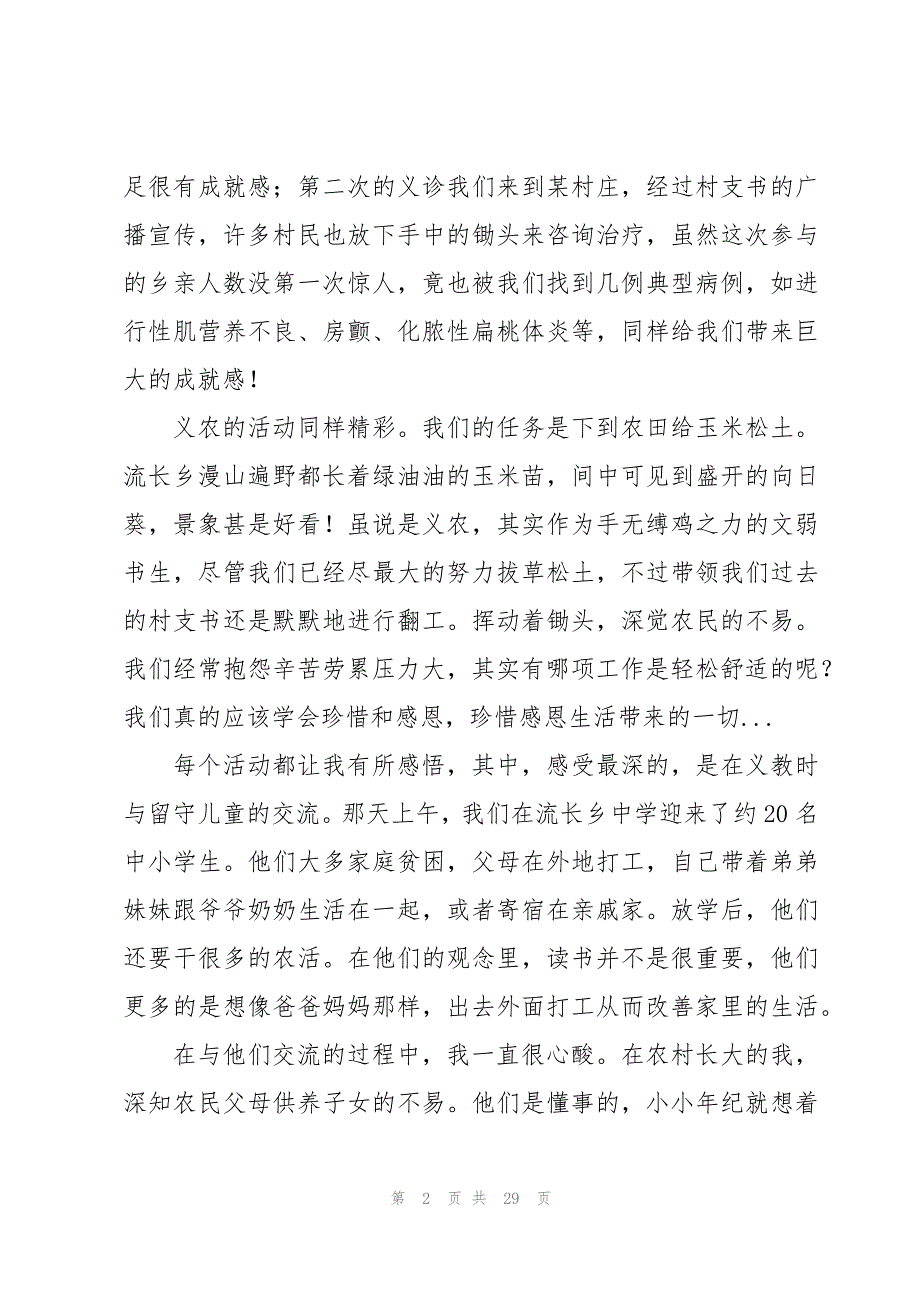 足很有成就感；第二次的义诊我们来到某村庄，经过村支书的广
播宣传，许多村民也放下手中的锄头来咨询治疗，虽然这次参与
的乡亲人数没第一次惊人，竟也被我们找到几例典型病例，如进
行性肌营养不良、房颤、化脓性扁桃体炎等，同样给我们带来巨
大的成就感！
义农的活动同样精彩。我们的任务是下到农田给玉米松土。
流长乡漫山遍野都长着绿油油的玉米苗，间中可见到盛开的向日
葵，景象甚是好看！虽说是义农，其实作为手无缚鸡之力的文弱
书生，尽管我们已经尽最大的努力拔草松土，不过带领我们过去
的村支书还是默默地进行翻工。挥动着锄头，深觉农民的不易。
我们经常抱怨辛苦劳累压力大，其实有哪项工作是轻松舒适的呢？
我们真的应该学会珍惜和感恩，珍惜感恩生活带来的一切...
每个活动都让我有所感悟，其中，感受最深的，是在义教时
与留守儿童的交流。那天上午，我们在流长乡中学迎来了约 20 名
中小学生。他们大多家庭贫困，父母在外地打工，自己带着弟弟
妹妹跟爷爷奶奶生活在一起，或者寄宿在亲戚家。放学后，他们
还要干很多的农活。在他们的观念里，读书并不是很重要，他们
更多的是想像爸爸妈妈那样，出去外面打工从而改善家里的生活。
在与他们交流的过程中，我一直很心酸。在农村长大的我，
深知农民父母供养子女的不易。他们是懂事的，小小年纪就想着
第 2 页 共 29 页